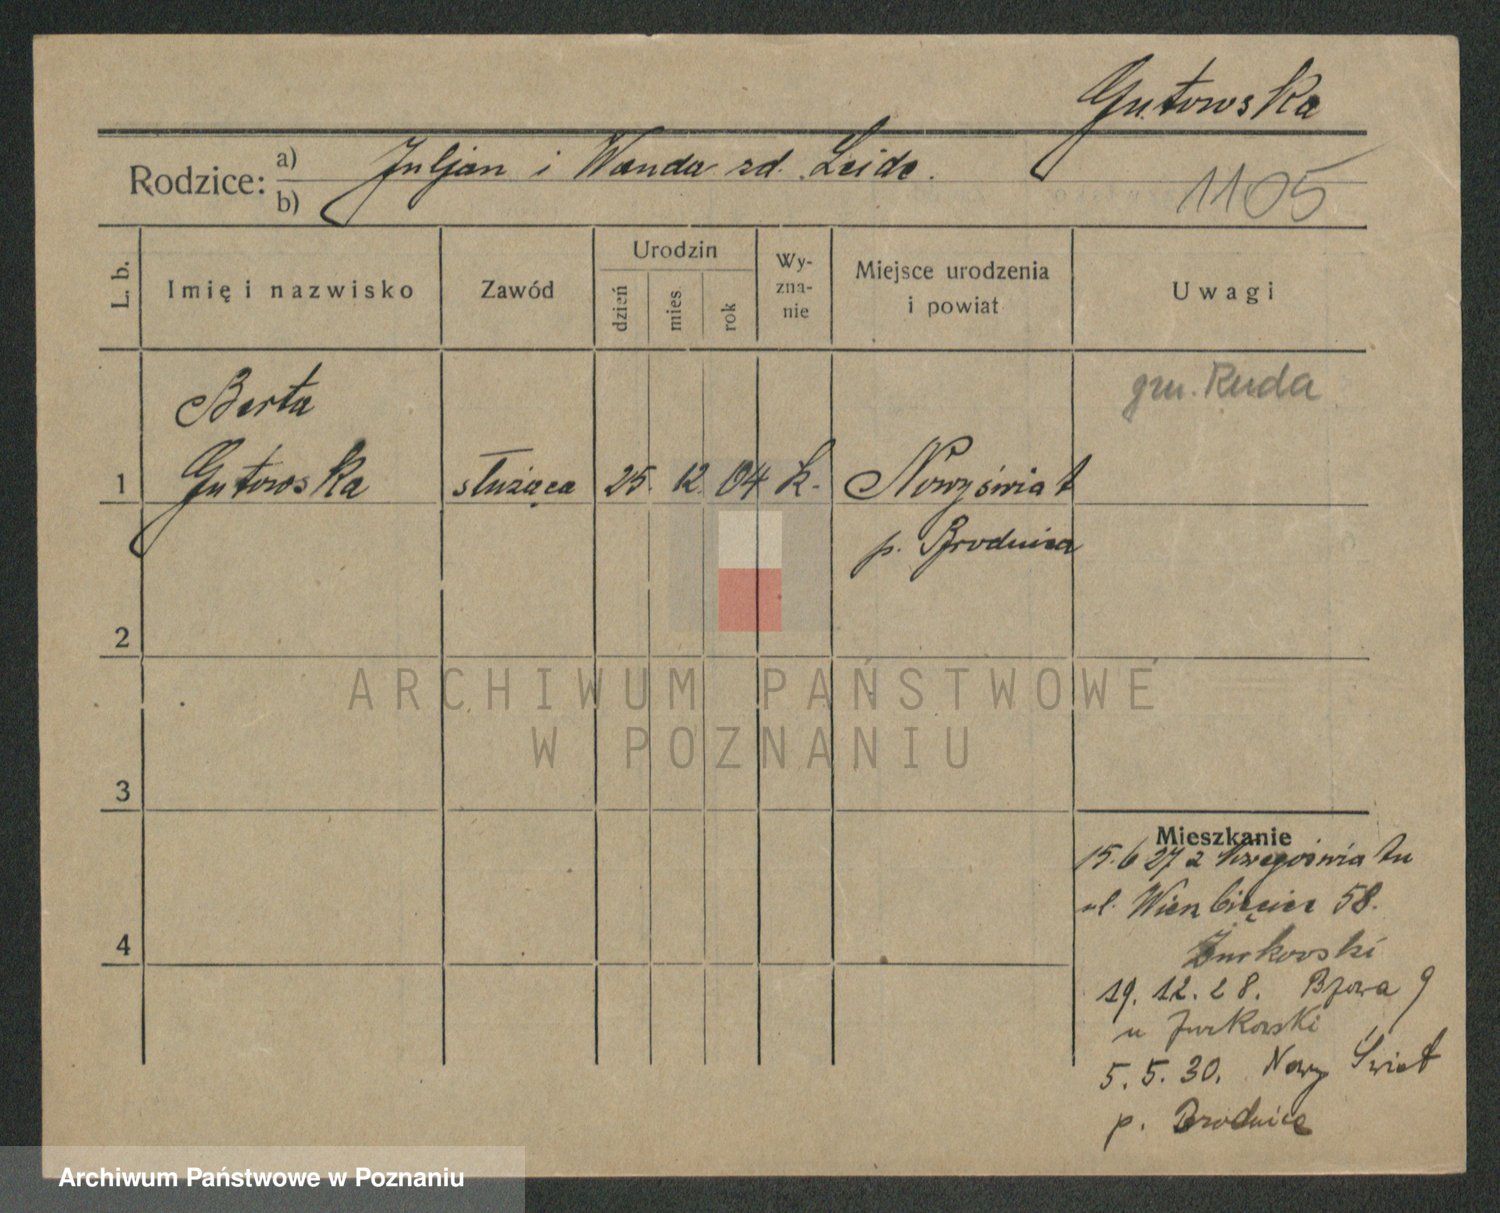 Gutowska
Rodzice: a) Juljan i Wanda zd. Leide.
b)
1105
L. b.
Imię i nazwisko
Zawód
Urodzin
dzień
mies
rok
Wy-
zna-
nie
Miejsce urodzenia
i powiat
Uwagi
gm. Ruda
Berta
1 Gutowska służąca 25. 12. 04 k. Nowyświat
p. Brodnica
2
ARCHIWUM PAŃSTWOWE
W POZNANIU
3
Mieszkanie
15. 6 27 z
ul. 58.
4
19. 12. 28. 9
u Jurkowski
5. 5. 30. Nowy Świat
p. Brodnica
Archiwum Państwowe w Poznaniu